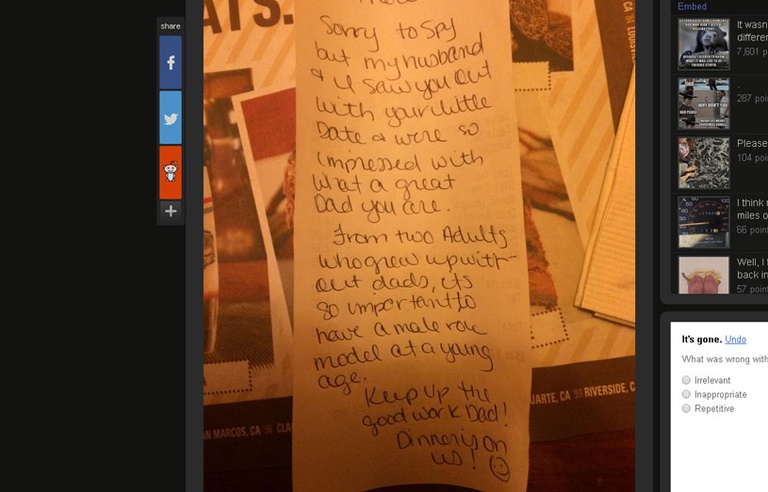 share
Embed
It wasn
differen
7,601 p
.
287 poin
Please
104 poi
I think
miles o
66 point
Well, I f
back in
57 point
It's gone. Undo
What was wrong with
Irrelevant
Inappropriate
Repetitive
ATS.
Sorry to Spy
but my husband
& I saw you out
with your little
Date & were so
impressed with
what a great
Dad you are.
From two Adults
who grew up with-
out dads, its
so important to
have a male role
model at a young
age.
Keep up the
good work Dad!
Dinner is on
us!
N MARCOS, CA '96 CLA
UARTE, CA '93 RIVERSIDE, C